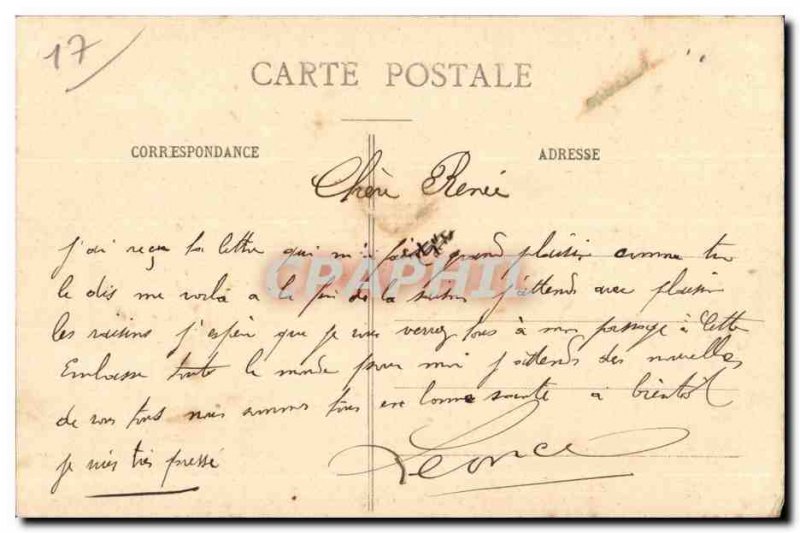 17
CARTE POSTALE
CORRESPONDANCE
ADRESSE
Chère Renée
J'ai reçu ta lettre qui m'a fait grand plaisir comme tu
le dis me voilà a la fin de la j'attends avec plaisir
les j'espère que je vous verrez tous à mon passage à Cette
Embrasse toute le monde pour moi j'attends des nouvelles
de vous tous nous sommes tous en bonne santé a bientôt
je suis très pressé
Léonce
CPAPHIL